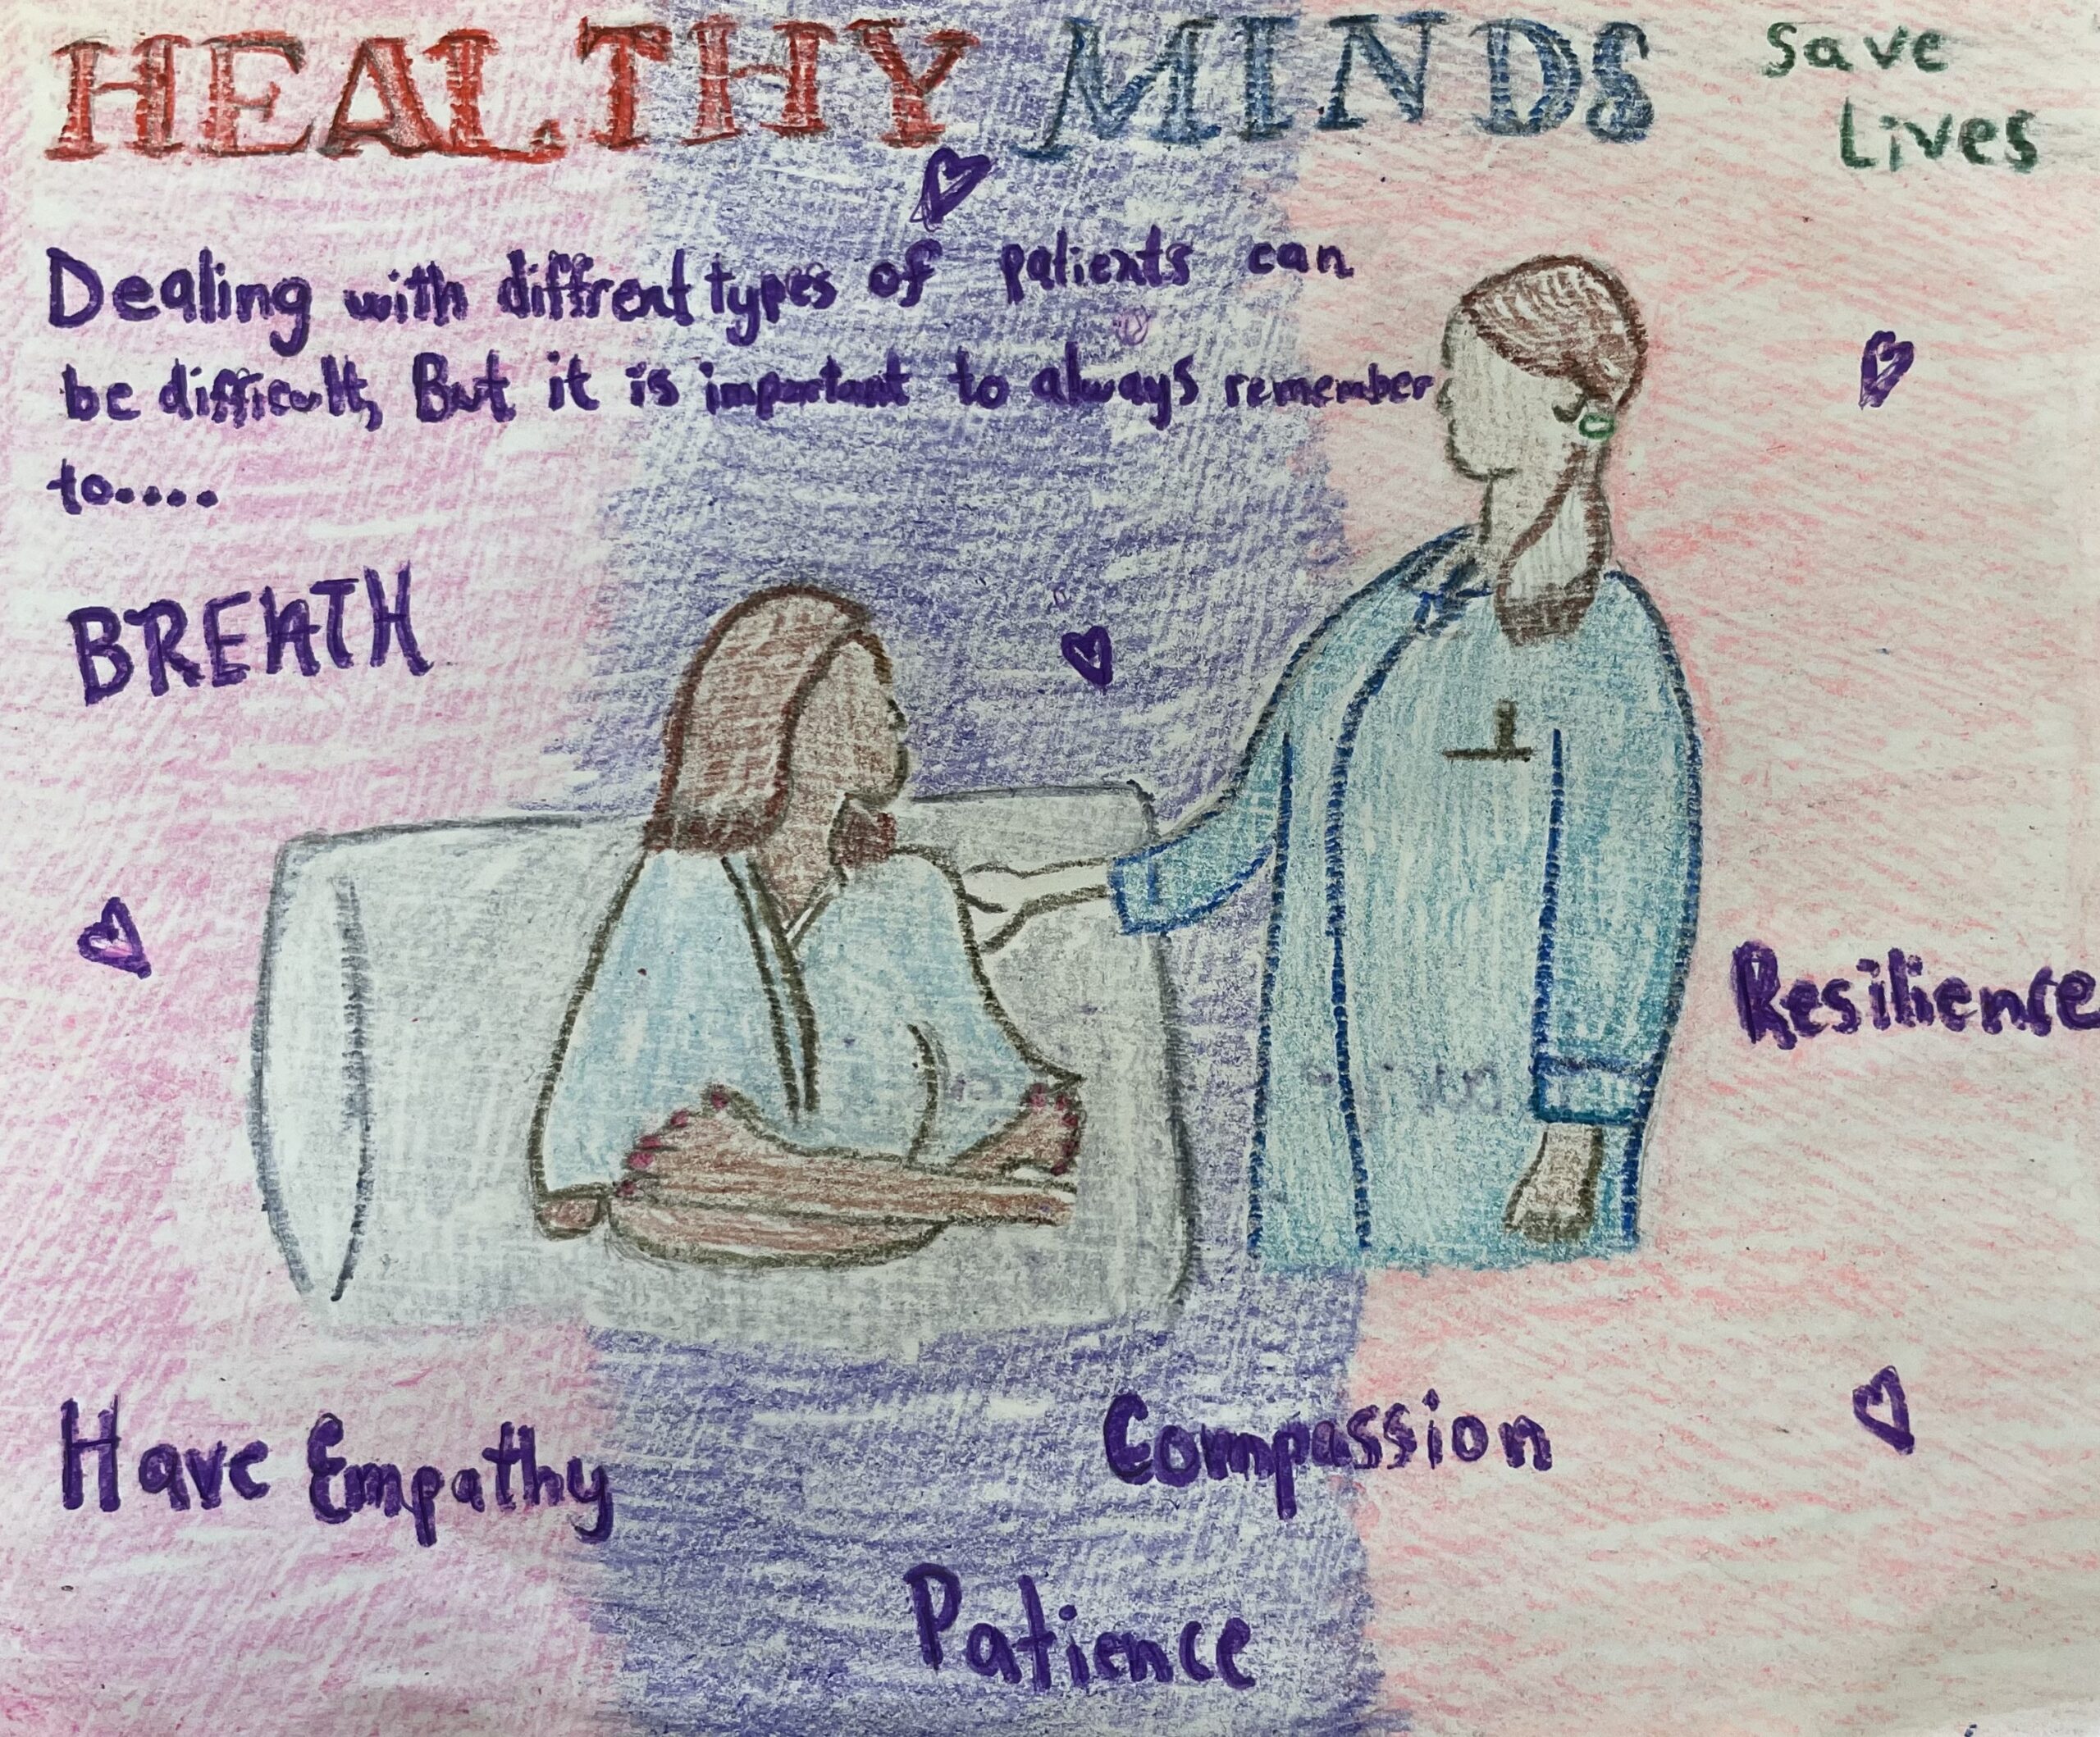 HEALTHY MINDS
Save
Lives
Dealing with diffrent types of patients can
be difficult, But it is important to always remember
to.....
BREATH
Resilience
Have Empathy
Compassion
Patience